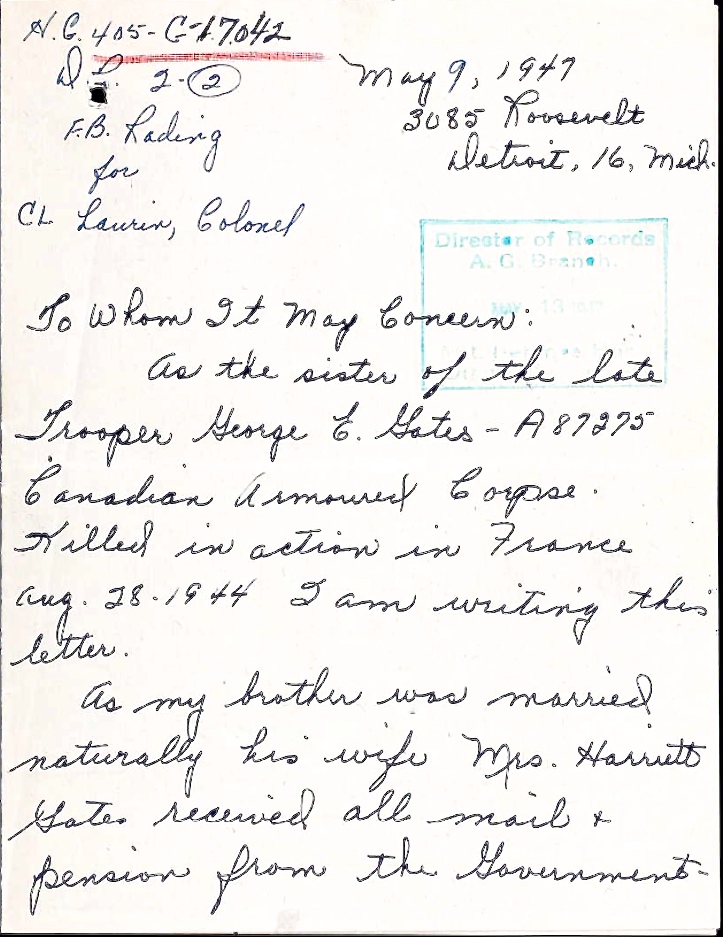 H.Q. 405-G-17,042
D.R. 2-2
F.B. Rading
for
CL Laurin, Colonel
May 9, 1947
3085 Roosevelt
Detroit, 16, Mich.
Director of Records
A. G. Branch.
MAY 13
To Whom It May Concern:
As the sister of the late
Trooper George E. Gates - A87275
Canadian Armoured Corpse.
Killed in action in France
Aug. 28-1944 I am writing this
letter.
As my brother was married
naturally his wife Mrs. Harriett
Gates received all mail &
pension from the Government-